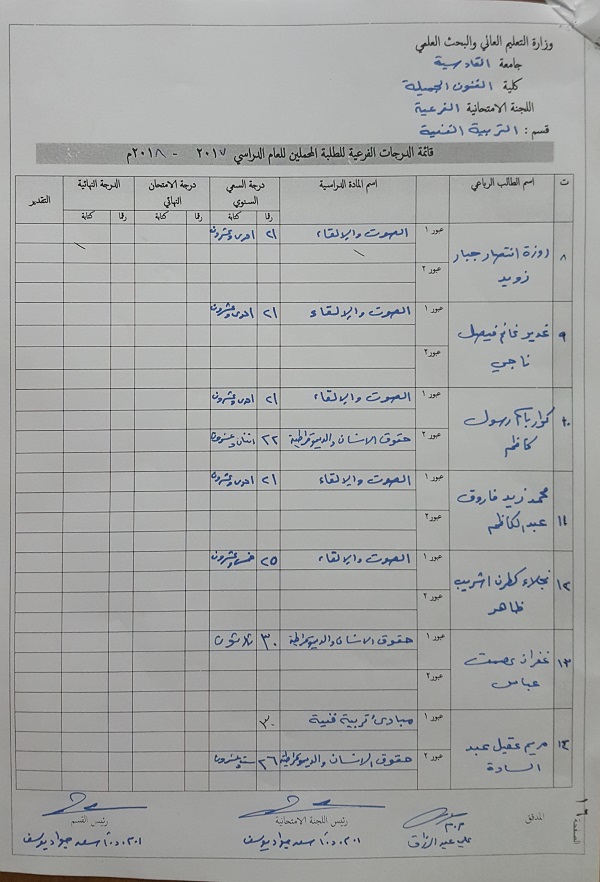 وزارة التعليم العالي والبحث العلمي
جامعة القادسية
كلية الفنون الجميلة
اللجنة الامتحانية الفرعية
قسم : التربية الفنية
قائمة الدرجات الفرعية للطلبة المحملين للعام الدراسي ٢٠١٧ - ٢٠١٨م
ت اسم الطالب الرباعي اسم المادة الدراسية درجة السعي السنوي درجة الامتحان النهائي الدرجة النهائية التقدير
رقما كتابة رقما كتابة رقما كتابة
٨ انتصار جبار زويد عبور ١ الصوت والالقاء ٢١ احدى وعشرون
عبور ٢
٩ غدير غانم فيصل ناجي عبور ١ الصوت والالقاء ٢١ احدى وعشرون
عبور ٢
١٠ رسول كاظم عبور ١ الصوت والالقاء ٢١ احدى وعشرون
عبور ٢ حقوق الانسان والديموقراطية ٢٢ اثنان وعشرون
١١ محمد زيد فاروق عبد الكاظم عبور ١ الصوت والالقاء ٢١ احدى وعشرون
عبور ٢
١٢ نجلاء ظاهر عبور ١ الصوت والالقاء ٢٥ خمس وعشرون
عبور ٢
١٣ غفران عصمت عباس عبور ١ حقوق الانسان والديموقراطية ٣٠ ثلاثون
عبور ٢
١٤ مريم عقيل عبد السادة عبور ١ مبادئ تربية فنية ٣٠
عبور ٢ حقوق الانسان والديموقراطية ٢٦ ست وعشرون
المدقق رئيس اللجنة الامتحانية رئيس القسم
م.م علي عبد الرزاق ا.م.د. سعد جواد يوسف ا.م.د. سعد جواد يوسف
الصفحة